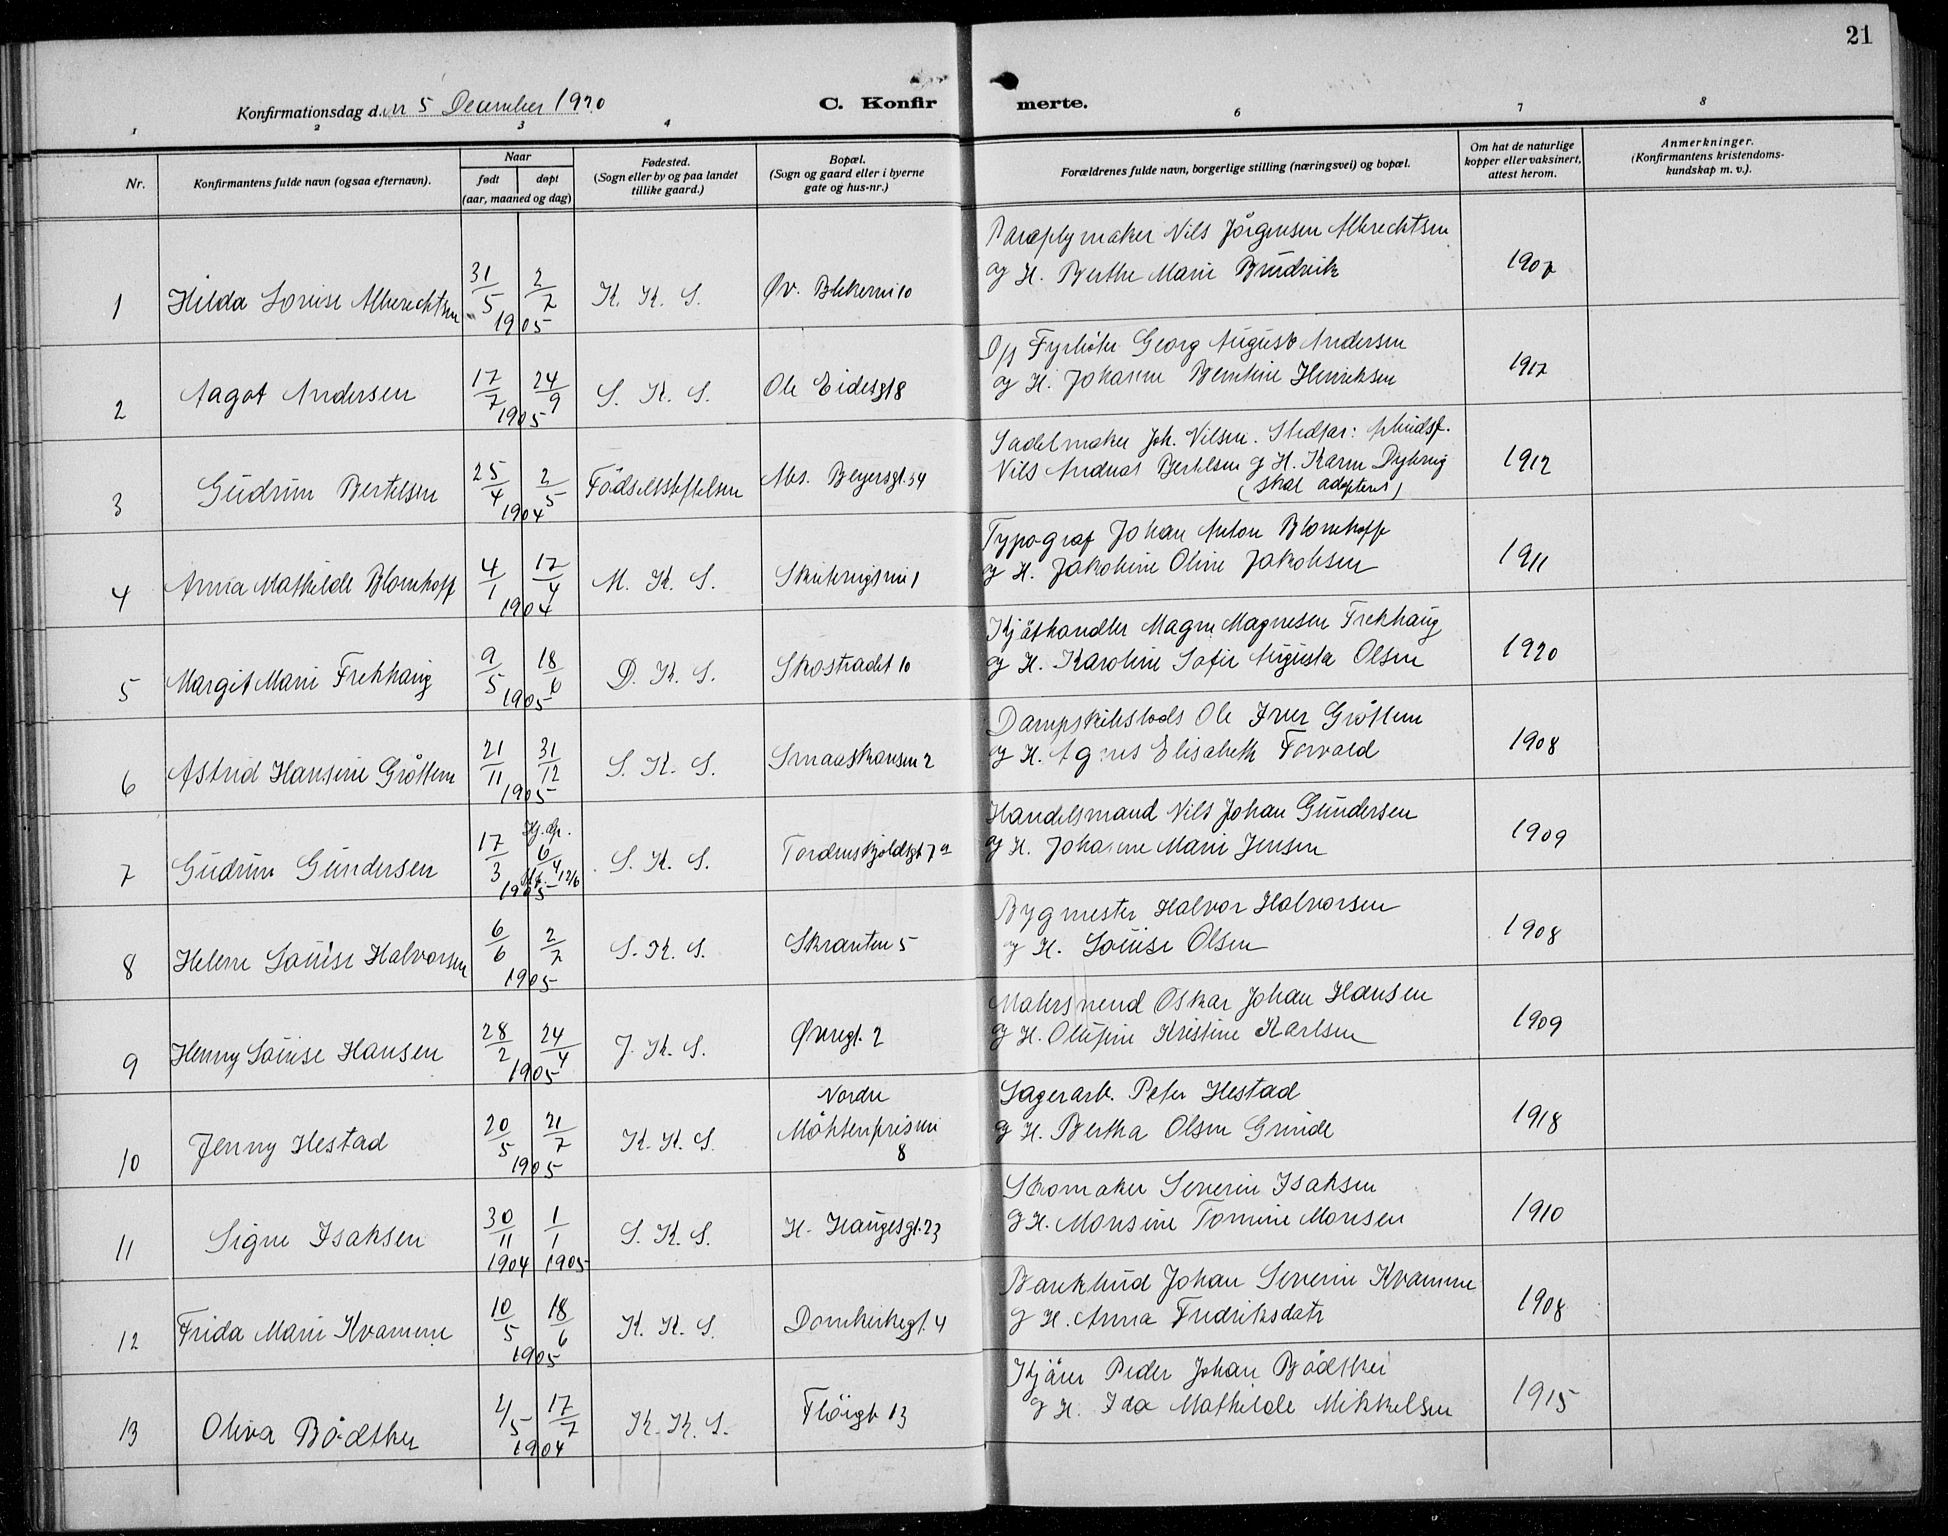 21
Konfirmationsdag den 5 December 1920
C. Konfirmerte.
1 2 3 4 6 7 8
Nr.
Konfirmantens fulde navn (ogsaa efternavn).
Naar
født
døpt
(aar, maaned og dag)
Fødested.
(Sogn eller by og paa landet
tillike gaard.)
Bopæl.
(Sogn og gaard eller i byerne
gate og hus-nr.)
Forældrenes fulde navn, borgerlige stilling (næringsvei) og bopæl.
Om hat de naturlige
kopper eller vaksinert,
attest herom.
Anmerkninger.
(Konfirmantens kristendoms-
kundskap m. v.).
1 Hilda Louise Albrechtsen 31/5 2/7 1905 K. K. S. Øv. Blekevei 10
Paraplymaker Nils Jörgensen Albrechtsen
og H. Berthe Marie Brudvik 1907
2 Aagot Andersen 17/7 24/9 1905 S. K. S. Ole Eidesgt 8
D/s Fyrböter Georg August Andersen
og H. Johanne Berntine Henriksen 1917
3 Gudrun Bertelsen 25/4 2/5 1904 Födselsstiftelsen Abs. Beyersgt. 34
Sadelmaker Joh. Nilsen. Stedfar: Arbeidsf.
Nils Andreas Bertelsen g H. Karen Dybvig
(skal adopteres) 1912
4 Anna Mathilde Blomhoff 4/1 17/4 1904 M. K. S. Skuteviksvei 1
Typograf Johan Anton Blomhoff
og H. Jakobine Oline Jakobsen 1911
5 Margit Marie Frekhaug 9/5 18/6 1905 D. K. S. Skostrædet 10
Kjöthandler Magne Magnesen Frekhaug
og H. Karoline Sofie Augusta Olsen 1920
6 Astrid Hansine Gröttem 21/11 31/12 1905 S. K. S. Smaaskansen 2
Dampskibslods Ole Iver Gröttem
og H. Agnes Elisabeth Forvald 1908
7 Gudrun Gundersen 17/3 Hj. dp. 6/4 Stf. 12/6 1905 S. K. S. Tordenskjoldsgt 7 a
Handelsmand Nils Johan Gundersen
og H. Johanne Marie Jensen 1909
8 Helene Louise Halvorsen 6/6 2/7 1905 S. K. S. Skranten 5
Bygmester Halvor Halvorsen
og H. Louise Olsen 1908
9 Henny Louise Hansen 28/2 24/4 1905 J. K. S. Øvregt. 2
Malersvend Oskar Johan Hansen
og H. Olufine Kristine Karlsen 1909
10 Jenny Hestad 20/5 21/7 1905 K. K. S. Nordre
Möhlenprisvei
8
Lagerarb. Peter Hestad
g H. Bertha Olsen Grinde 1918
11 Signe Isaksen 30/11 1904 1/1 1905 S. K. S. H. Haugesgt. 23
Skomaker Severin Isaksen
g H. Monsine Tomine Monsen 1910
12 Frida Marie Kvamme 10/5 18/6 1905 K. K. S. Domkirkegt. 4
Bankbud Johan Severin Kvamme
g H. Anna Fredriksdatr 1908
13 Oliva Bödtker 4/5 17/7 1904 K. K. S. Flöigt 13
Kjörer Peder Johan Bödtker
g H. Ida Mathilde Mikkelsen 1915